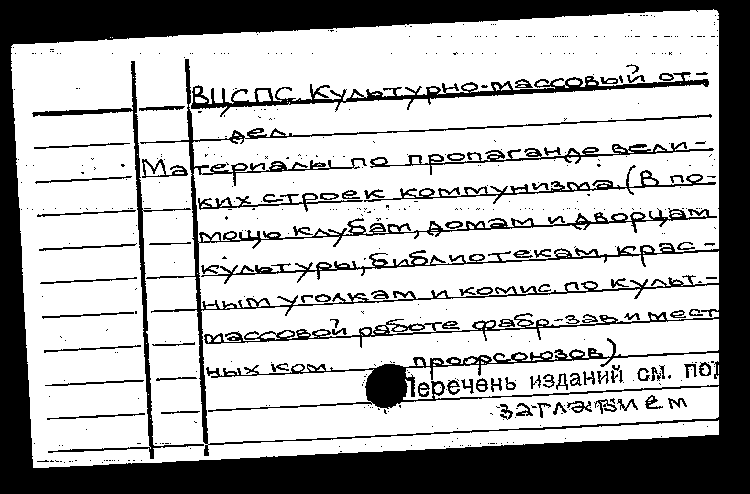 ВЦСПС. Культурно-массовый от-
дел.
Материалы по пропаганде вели-
ких строек коммунизма. (В по-
мощь клубам, домам и дворцам
культуры, библиотекам, крас-
ным уголкам и комис. по культ.-
массовой работе фабр-зав. и мест
ных ком. профсоюзов).
Перечень изданий см. под
заглавием